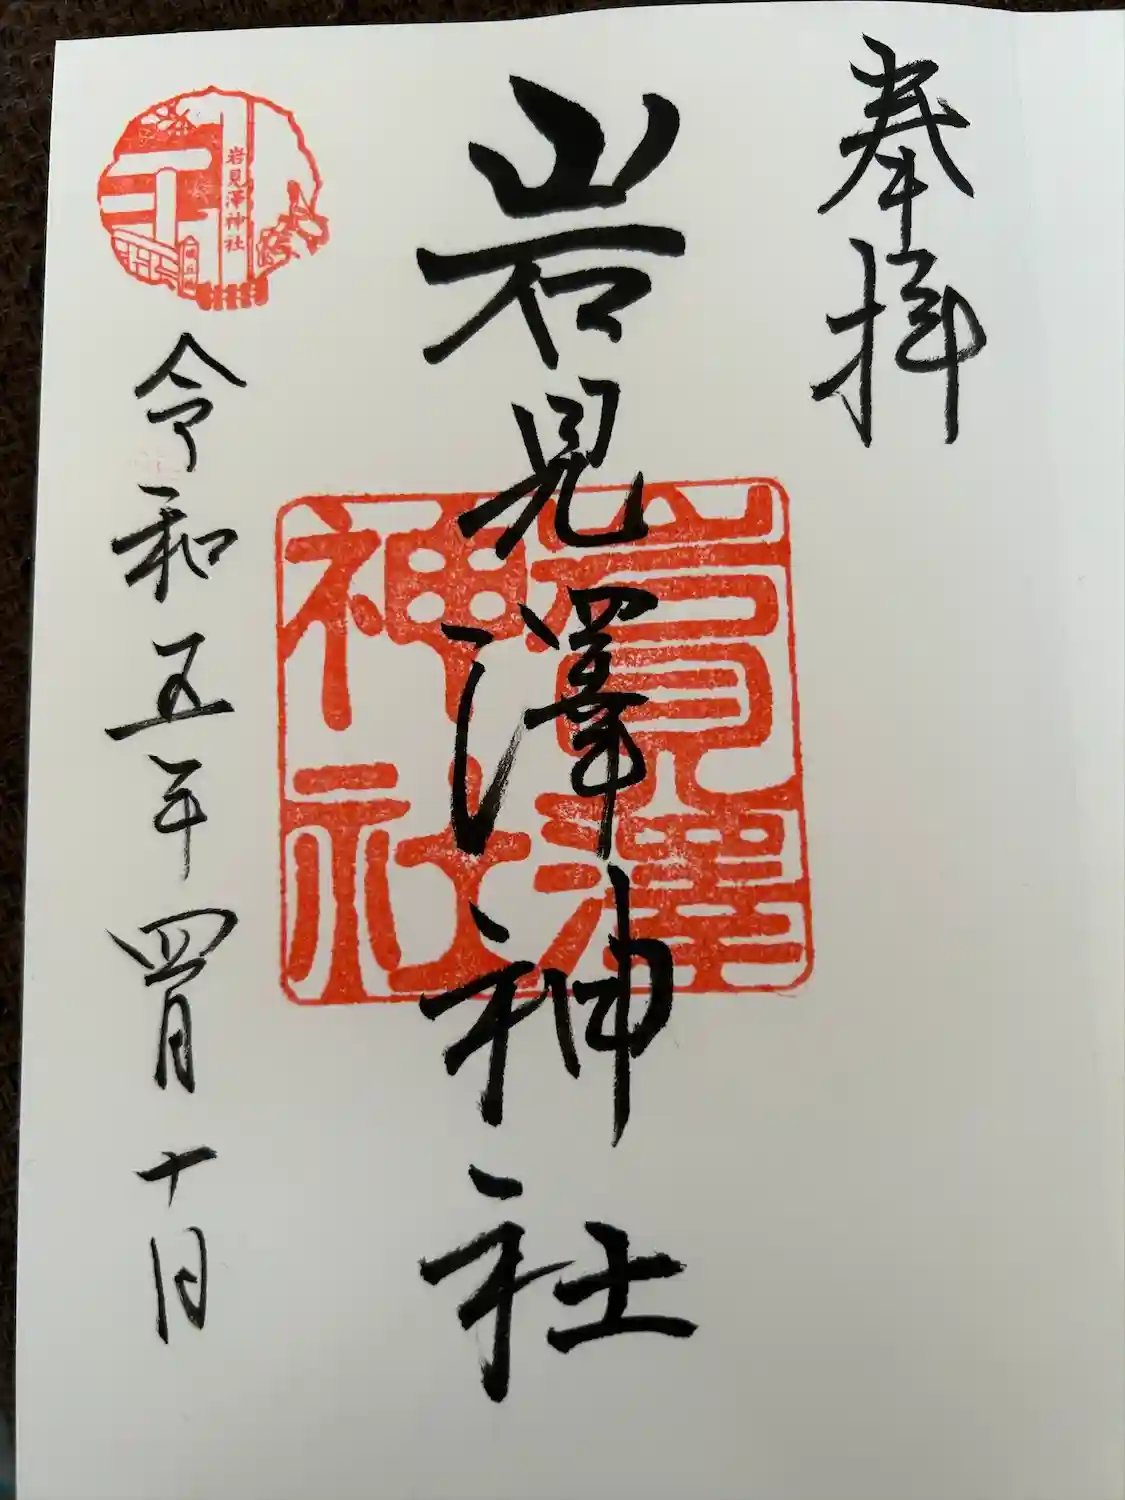 奉拝
岩見澤神社
岩見澤神社
岩見澤神社
令和五年四月十日